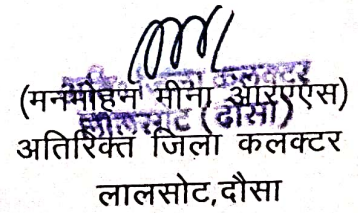 (मनमोहन मीना आरएएस)
अतिरिक्त जिला कलक्टर
लालसोट (दौसा)
अतिरिक्त जिला कलक्टर
लालसोट,दौसा